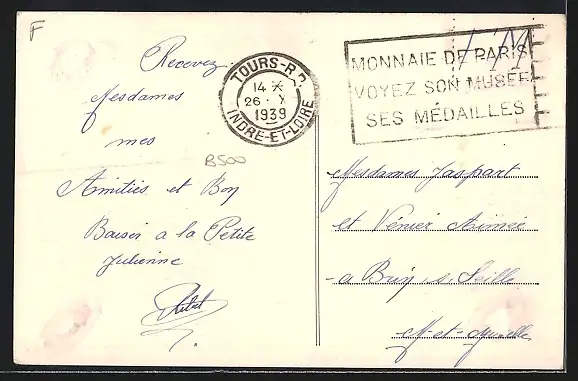 F
Recevez
Mesdames
mes
Amitiés et Bon
Baiser a la Petite
Julienne
B500
TOURS-R.P.
14 H
26 · X
1939
INDRE-ET-LOIRE
MONNAIE DE PARIS
VOYEZ SON MUSÉE
SES MÉDAILLES
Mesdames Jaspart
et Vénier Aimée
a Brin s. Seille
M-et-Moselle